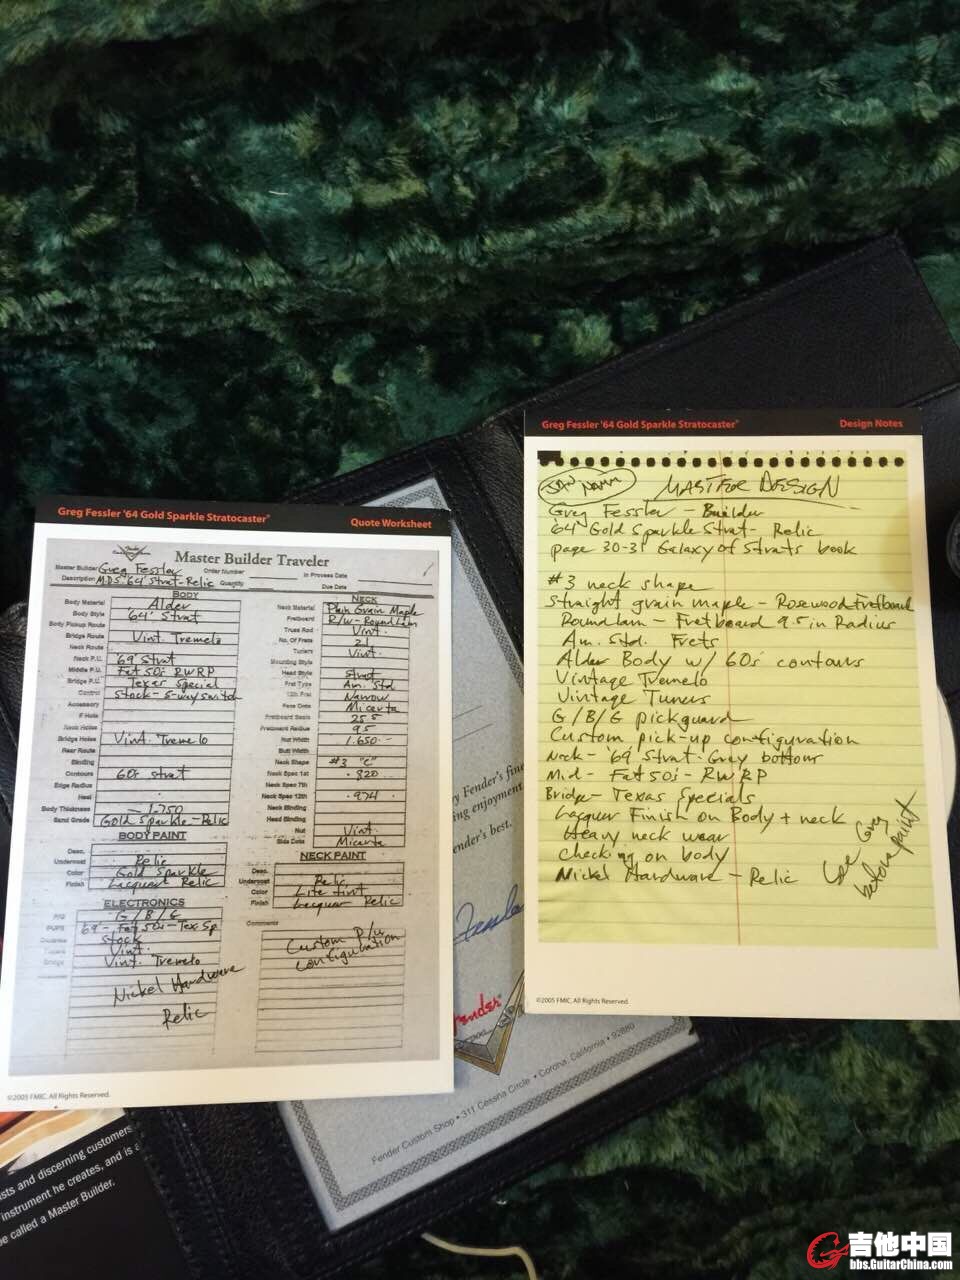 Greg Fessler '64 Gold Sparkle Stratocaster®
Quote Worksheet
Master Builder Traveler
Master Builder Greg Fessler
Order Number
In Process Date
Description M.D.S '64 Strat-Relic
Quantity
Due Date
BODY
Body Material Alder
Body Style '64' Strat
Body Pickup Route
Bridge Route Vint. Tremelo
Neck Route
Neck P.U. '69 Strat
Middle P.U. Fat 50s RWRP
Bridge P.U. Texas Special
Control Stock - 5-way switch
Accessory
F Hole
Neck Holes
Bridge Holes Vint. Tremelo
Rear Route
Binding
Contours 60s strat
Edge Radius
Heel
Body Thickness 1.750
Sand Grade Gold Sparkle - Relic
BODY PAINT
Desc.
Undercoat Relic
Color Gold Sparkle
Finish Lacquer Relic
ELECTRONICS
P/G G/B/G
PUPS '69 - Fat 50s - Tex Sp
Stock
Vint.
Bridge Vint. Tremelo
Nickel Hardware
Relic
NECK
Neck Material Plain Grain Maple
Fretboard R/w - Round Lam
Truss Rod Vint.
No. Of Frets 21
Tuners Vint.
Mounting Style
Head Style Strat
Fret Type Am. Std
12th Fret Narrow
Face Dots Micarta
Fretboard Scale 25.5
Fretboard Radius 9.5
Nut Width 1.650
Butt Width
Neck Shape #3 "C"
Neck Spec 1st .820
Neck Spec 7th
Neck Spec 12th .974
Neck Binding
Head Binding
Nut Vint.
Side Dots Micarta
NECK PAINT
Desc.
Undercoat Relic
Color Lite tint
Finish Lacquer Relic
Comments
Custom P/u
configuration
©2005 FMIC. All Rights Reserved.
Greg Fessler '64 Gold Sparkle Stratocaster®
Design Notes
MASTER DESIGN
Greg Fessler - Builder
'64' Gold Sparkle Strat - Relic
page 30-31 Galaxy of Strats book
#3 neck shape
Straight grain maple - Rosewood Fretboard
Round Lam - Fretboard 9.5 in Radius
Am. Std. Frets
Alder Body w/ 60s contours
Vintage Tremelo
Vintage Tuners
G/B/G pickguard
Custom pick-up configuration
Neck - '69 Strat - Grey bottoms
Mid - Fat 50s - RWRP
Bridge - Texas Specials
Lacquer Finish on Body + neck
Heavy neck wear
checking on body
Nickel Hardware - Relic
See Greg
before paint
©2005 FMIC. All Rights Reserved.
y Fender's fine
ing enjoyment
ender's best.
Fender
Fender Custom Shop • 311 Cessna Circle • Corona, California • 92880
ists and discerning customers
instrument he creates, and is a
be called a Master Builder.
吉他中国
bbs.GuitarChina.com